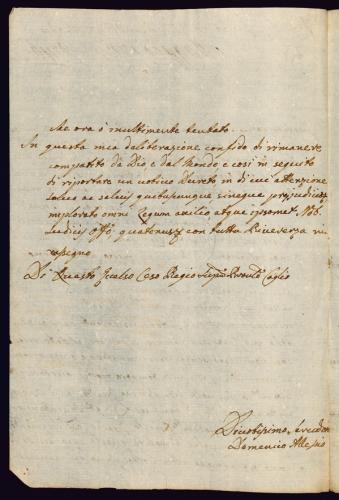 ne ora è inutilmente tentato.
In questa mia deliberazione confido di rimanere
compatito da Dio e dal Mondo e così in seguito
di riportare un notico Decreto in di cui attenzione
salvis ac salvis quibuscunque sinaque prejudicio
implorato omni Legum auxilio atque ipsomet Nob.
Iudicis Offo, quatenus con tutta Riverenza mi
rassegno
Di Questo Inclso Ces.o Regio
Devotissimo, e
Domenico Allesio